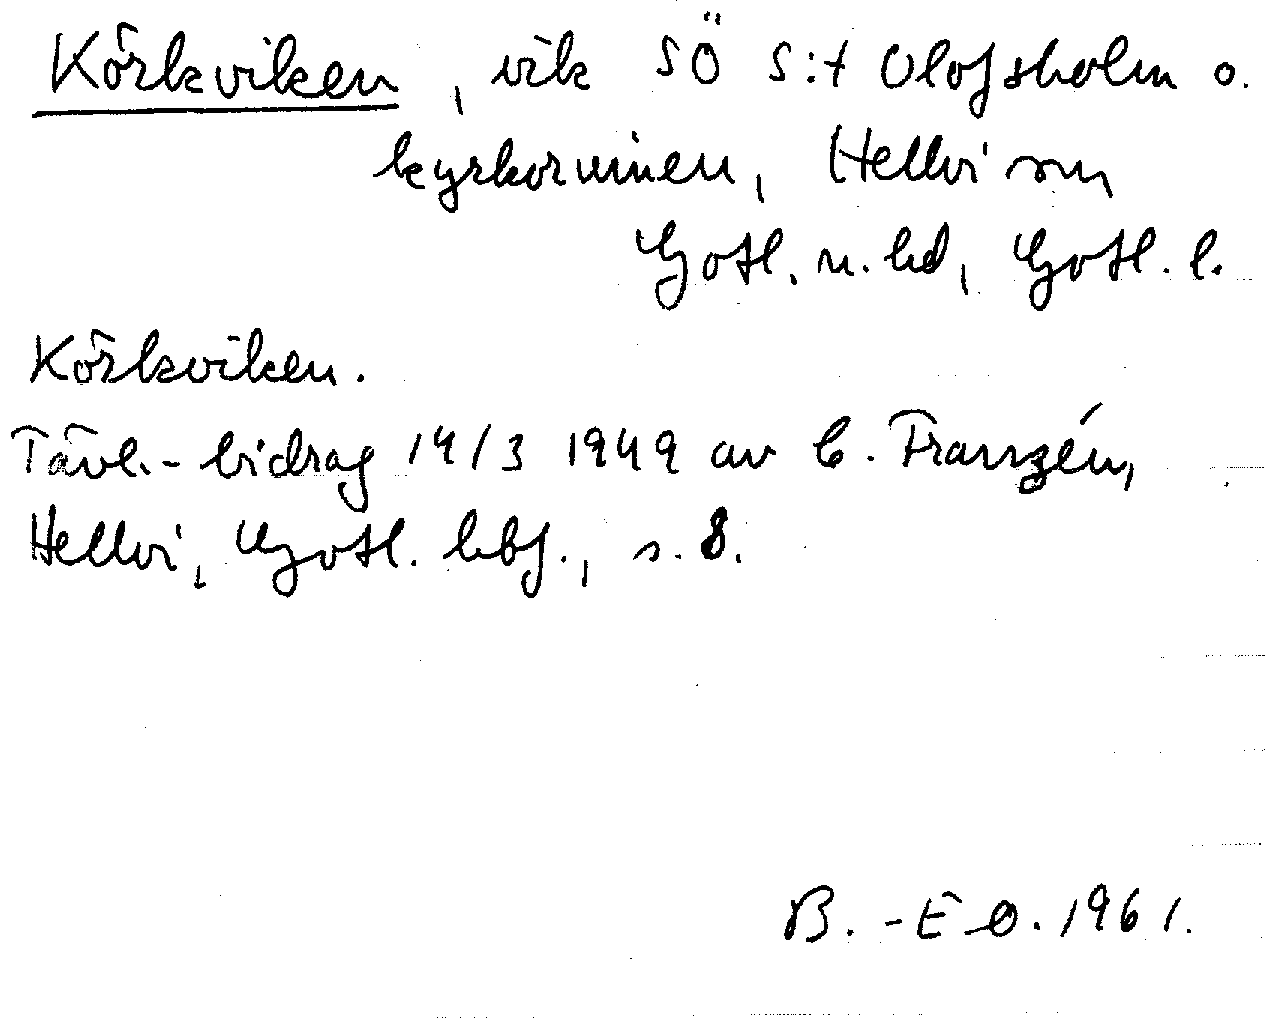 Körkviken, vik SÖ S:t Olofsholm o.
kyrkoruinen, Hellvi sn
Gotl. n. hd, Gotl. l.
Körkviken.
Tävl.-bidrag 14/3 1949 av C. Franzén,
Hellvi, Gotl. hbf., s. 8.
B.-E O. 1961.